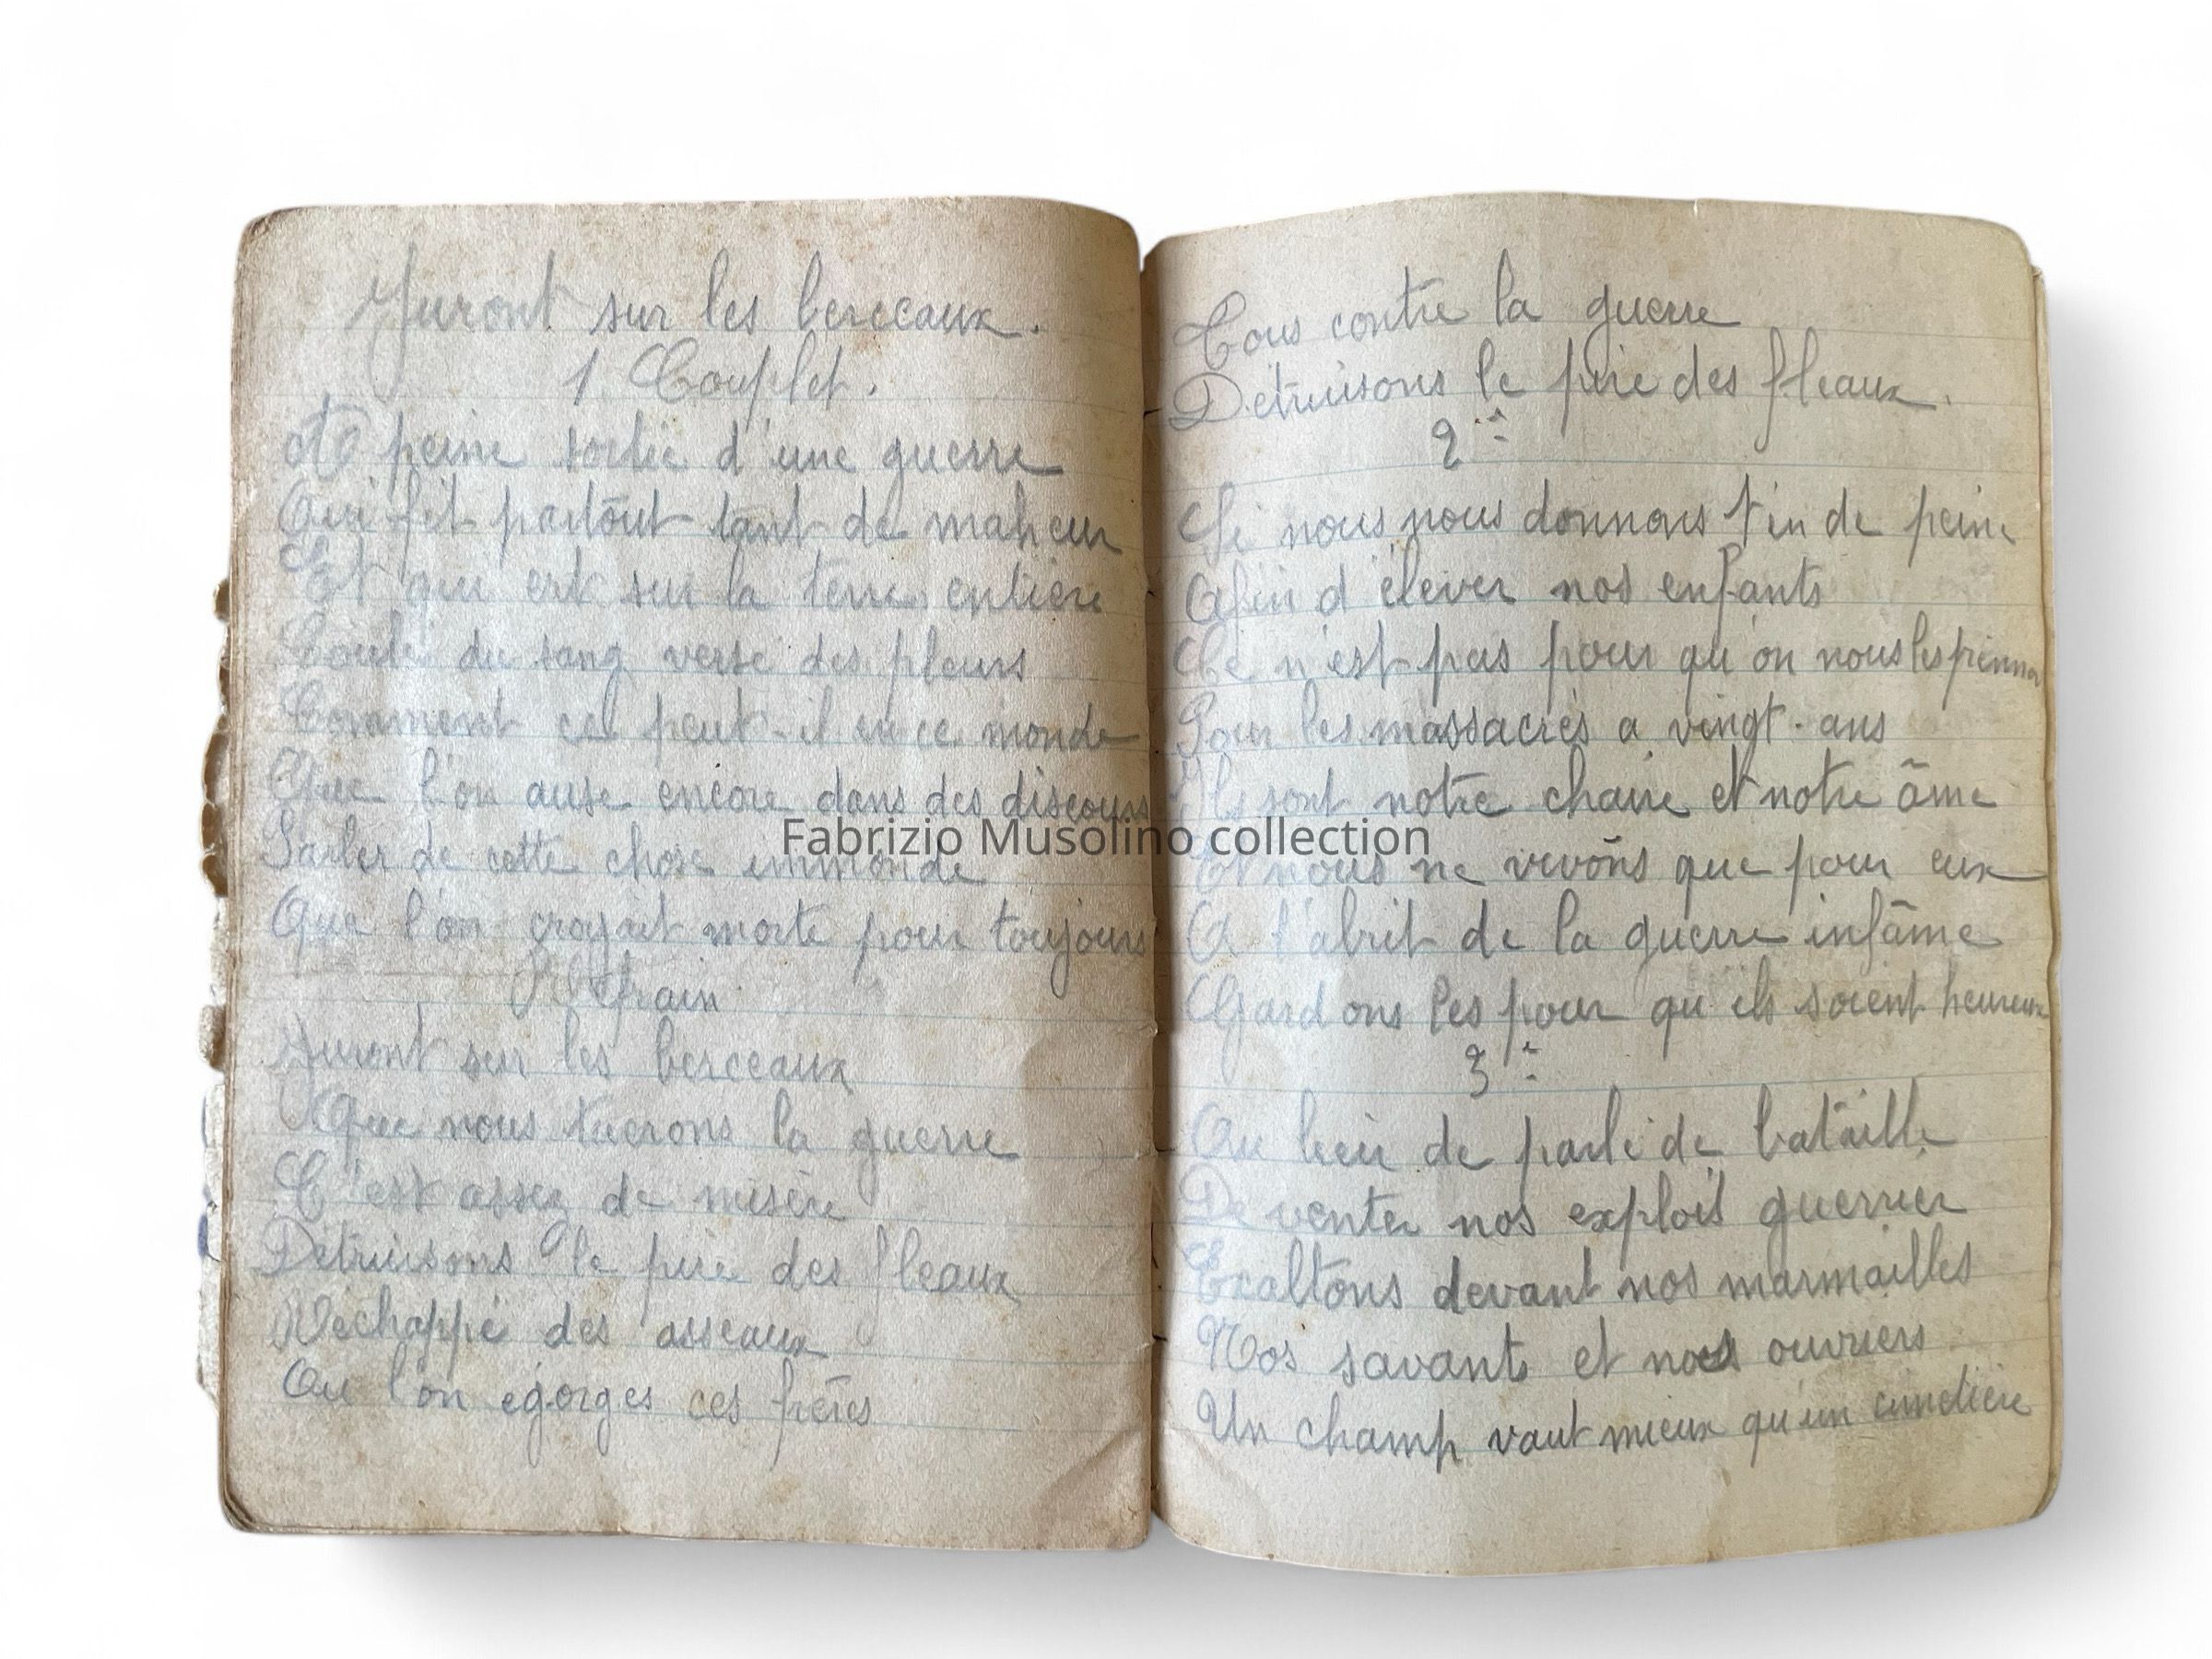 Juront sur les berceaux.
1 Couplet.
A peine sortie d'une guerre
Qui fit partout tant de maheur
Et qui ert sur la terre entière
Coulé du sang verse des pleurs
Comment ce peut-il en ce monde
Que l'on ause encore dans des discours
Parler de cette chose immonde
Que l'on croyait morte pour toujours
Refrain
Juront sur les berceaux
Que nous tuerons la guerre
C'est assez de misère
Detruisons le pire des fleaux
Réchappé des asseaux
Ou l'on egorges ces frères
Tous contre la guerre
Detruisons le pire des fleaux.
2
Si nous nous donnons tin de peine
Afin d'élever nos enfants
Ce n'est pas pour qu'on nous les prenne
Pour les massacrés a vingt-ans
Ils sont notre chaire et notre âme
Et nous ne vivons que pour eux
A l'abrit de la guerre infâme
Gardons les pour qu'ils soient heureux
3
Au lieu de parlé de bataille
De venter nos exploit guerrier
Exaltons devant nos marmailles
Nos savants et nos ouvriers
Un champ vaut mieux qu'un cimetière
Fabrizio Musolino collection